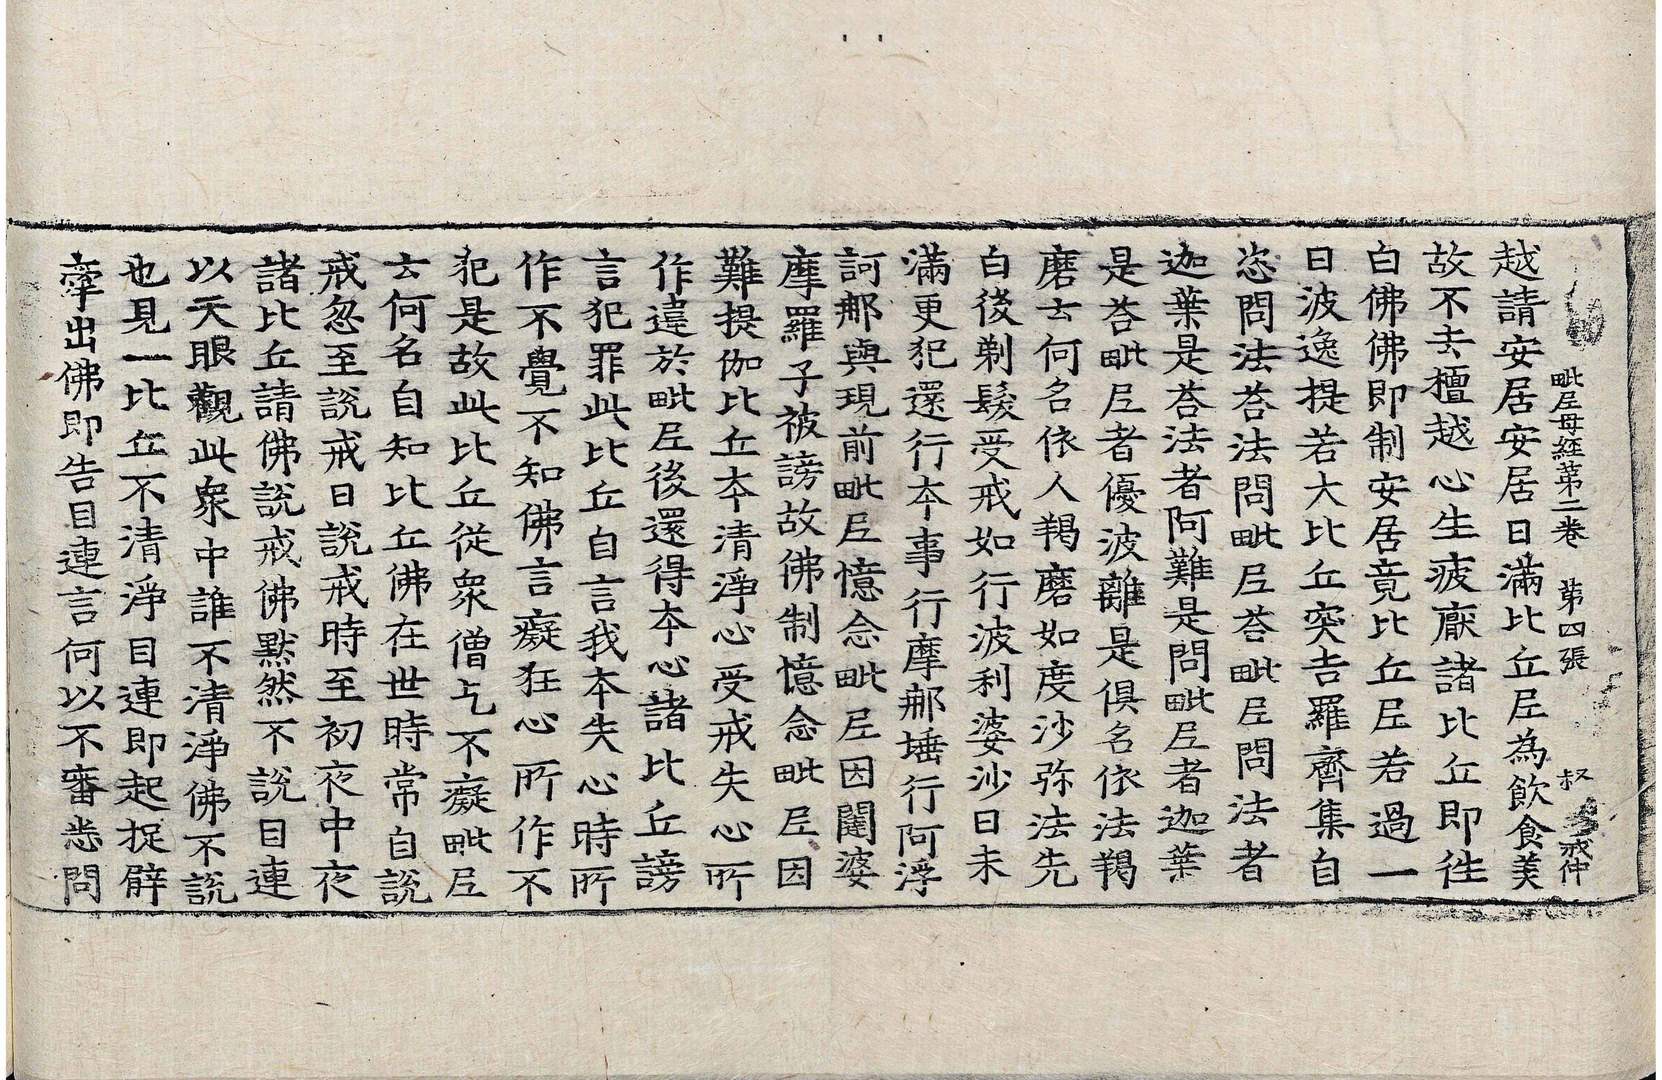 毗尼母經苐二卷 苐四張 叔 戒仲
越請安居安居日滿比丘尼為飮食美
故不去檀越心生疲厭諸比丘即徃
白佛佛即制安居竟比丘尼若過一
日波逸提若大比丘突吉羅齊集自
恣問法荅法問毗尼荅毗尼問法者
迦葉是荅法者阿難是問毗尼者迦葉
是荅毗尼者優波離是俱名依法羯
磨云何名依人羯磨如度沙弥法先
白後剃髮受戒如行波利婆沙日未
滿更犯還行夲事行摩那埵行阿浮
訶那與現前毗尼憶念毗尼因闥婆
摩羅子被謗故佛制憶念毗尼因
難提伽比丘夲清淨心受戒失心所
作違於毗尼後還得夲心諸比丘謗
言犯罪此比丘自言我夲失心時所
作不覺不知佛言癡狂心所作不
犯是故此比丘從衆僧乞不癡毗尼
云何名自知比丘佛在世時常自說
戒忽至說戒日說戒時至初夜中夜
諸比丘請佛說戒佛默然不說目連
以天眼觀此衆中誰不清淨佛不說
也見一比丘不清淨目連即起捉臂
牽出佛即告目連言何以不審悉問